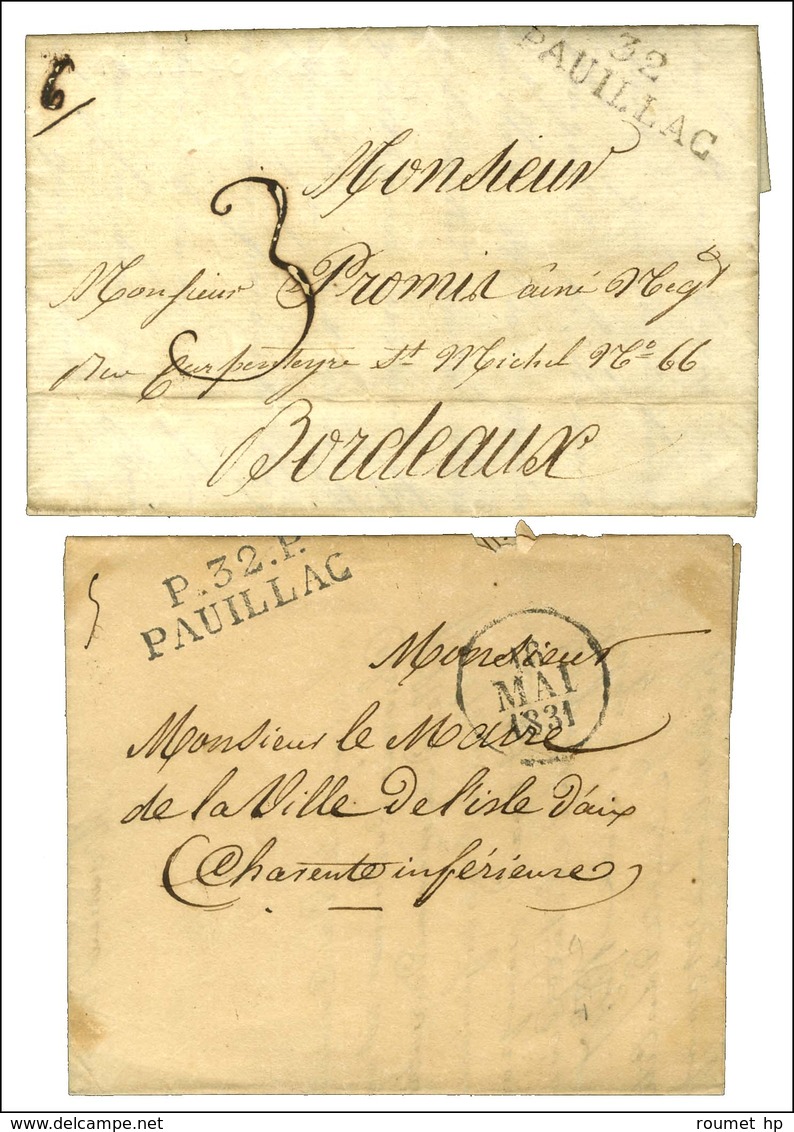 6
32
PAUILLAC
Monsieur
3
Monsieur Promis ainé Negt
rue Carpenteyre St Michel No 66
Bordeaux
P.32.P.
PAUILLAC
Monsieur
18
MAI
1831
Monsieur le Maire
de la Ville De l'isle D'aix
Charente inférieure
www.delcampe.net
roumet hp